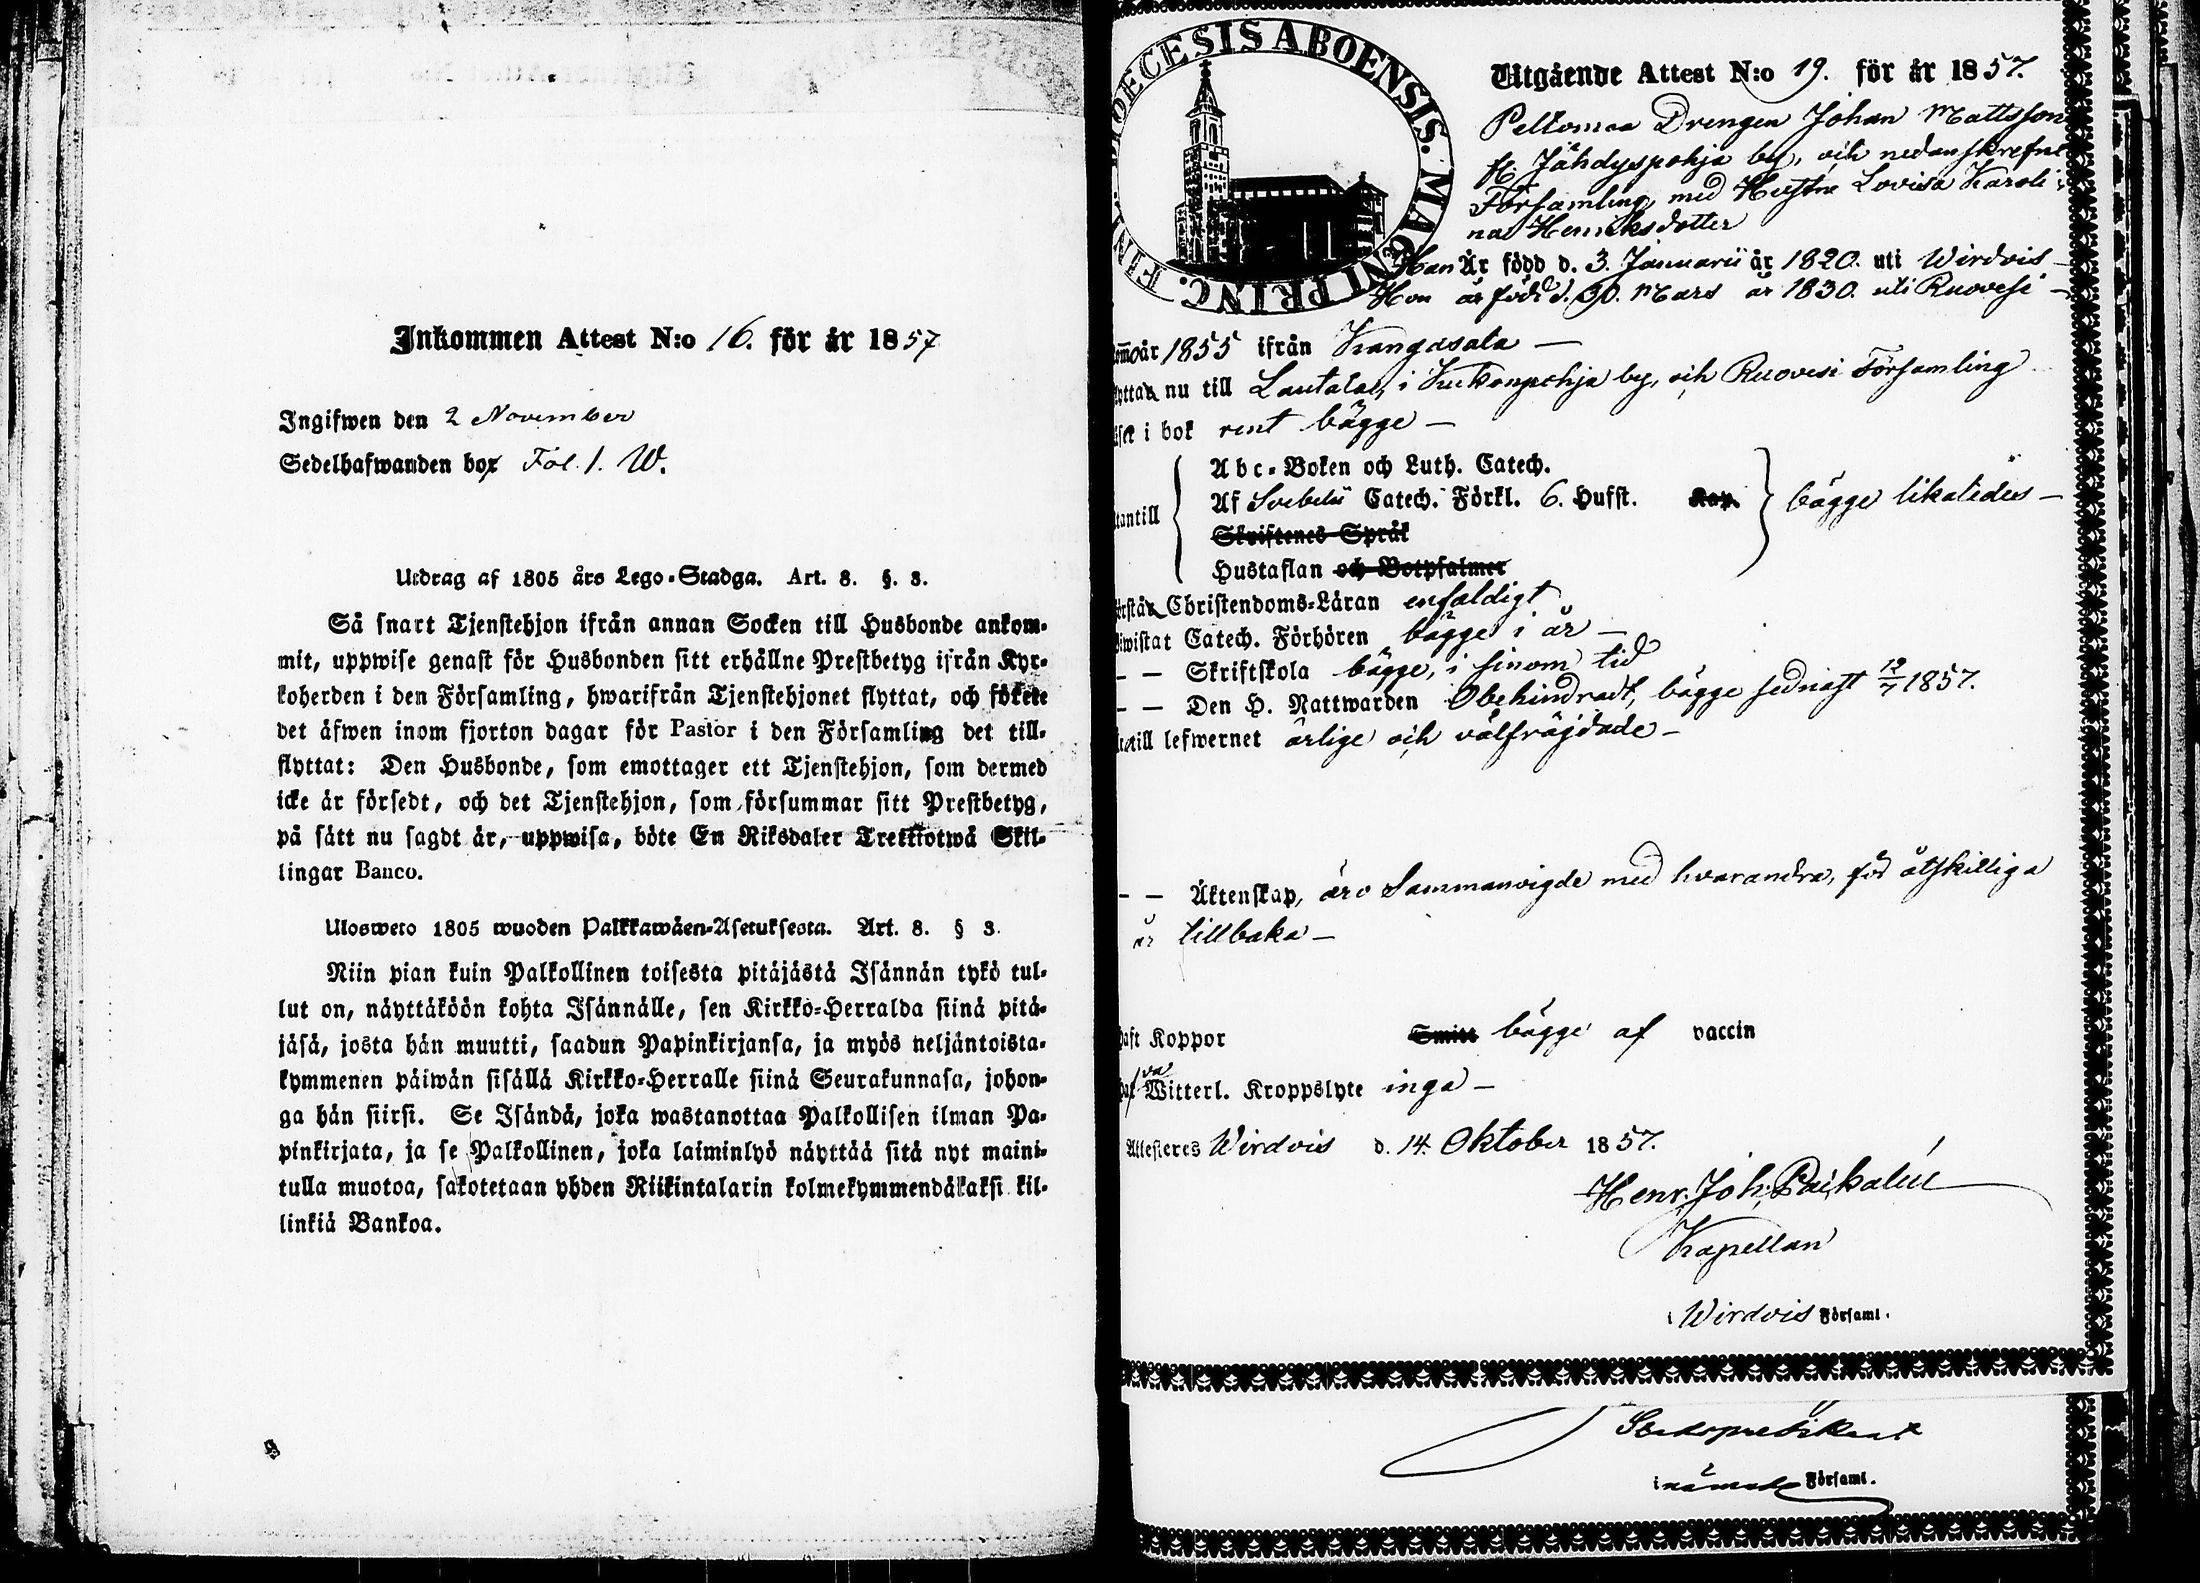 Inkommen Attest N:o 16. för år 1857
Ingifwen den 2 November
Sedelhafwanden bor Fol. 1. W.
Utdrag af 1805 års Lego-Stadga. Art. 8. §. 3.
Så snart Tjenstehjon ifrån annan Socken till Husbonde ankom-
mit, uppwise genast för Husbonden sitt erhållne Prestbetyg ifrån Kyr-
koherden i den Församling, hwarifrån Tjenstehjonet flyttat, och förete
det äfwen inom fjorton dagar för Pastor i den Församling det till-
flyttat: Den Husbonde, som emottager ett Tjenstehjon, som dermed
icke är försedt, och det Tjenstehjon, som försummar sitt Prestbetyg,
på sätt nu sagdt är, uppwisa, böte En Riksdaler Trettiotwå Skil-
lingar Banco.
Ulosweto 1805 wuoden Palkkawäen-Asetuksesta. Art. 8. § 3.
Niin pian kuin Palkollinen toisesta pitäjästä Isännän tykö tul-
lut on, näyttäköön kohta Isännälle, sen Kirkko-Herralda siinä pitä-
jäsä, josta hän muutti, saadun Papinkirjansa, ja myös neljäntoista-
kymmenen päiwän sisällä Kirkko-Herralle siinä Seurakunnasa, johon-
ga hän siirsi. Se Isändä, joka wastanottaa Palkollisen ilman Pa-
pinkirjata, ja se Palkollinen, joka laiminlyö näyttää sitä nyt maini-
tulla muotoa, sakotetaan yhden Riikintalarin kolmekymmendäkaksi kil-
linkiä Bankoa.
DIOECESIS ABOENSIS. MAGNI PRINC. FINL.
Utgående Attest N:o 19. för år 1857.
Peltomaa Drengen Johan Mattsson
fr. Jähdyspohja by, och nedanskrefne
Församling, med Hustru Lovisa Karoli-
na Henriksdotter
Han Är född d. 3. Januarii år 1820. uti Wirdois
Hon är född d. 30. Mars år 1830. uti Ruovesi
år 1855 ifrån Kangasala
nu till Lautala, i Kuckonpohja by, och Ruovesi Församling
i bok rent bägge
Abc-Boken och Luth. Catech.
Af Svebelii Catech. Förkl. 6. Hufst. Kap. bägge likaledes
Skriftenes Språk
Hustaflan och Botpsalmer
Christendoms-Läran enfaldigt
Catech. Förhören bägge i år
Skriftskola bägge, i sinom tid
Den H. Nattwarden Obehindradt, bägge sednast 12/7 1857.
till lefwernet ärlige och välfräjdade
Äktenskap, äro Sammanvigde med hvarandra, för åtskilliga
år tillbaka
haft Koppor Smitt bägge af vaccin
Witterl. Kroppslyte inga
Attesteres Wirdois d. 14. Oktober 1857.
Henr. Joh.
Kapellan
i Wirdois Församl.
i nämnde Församl.